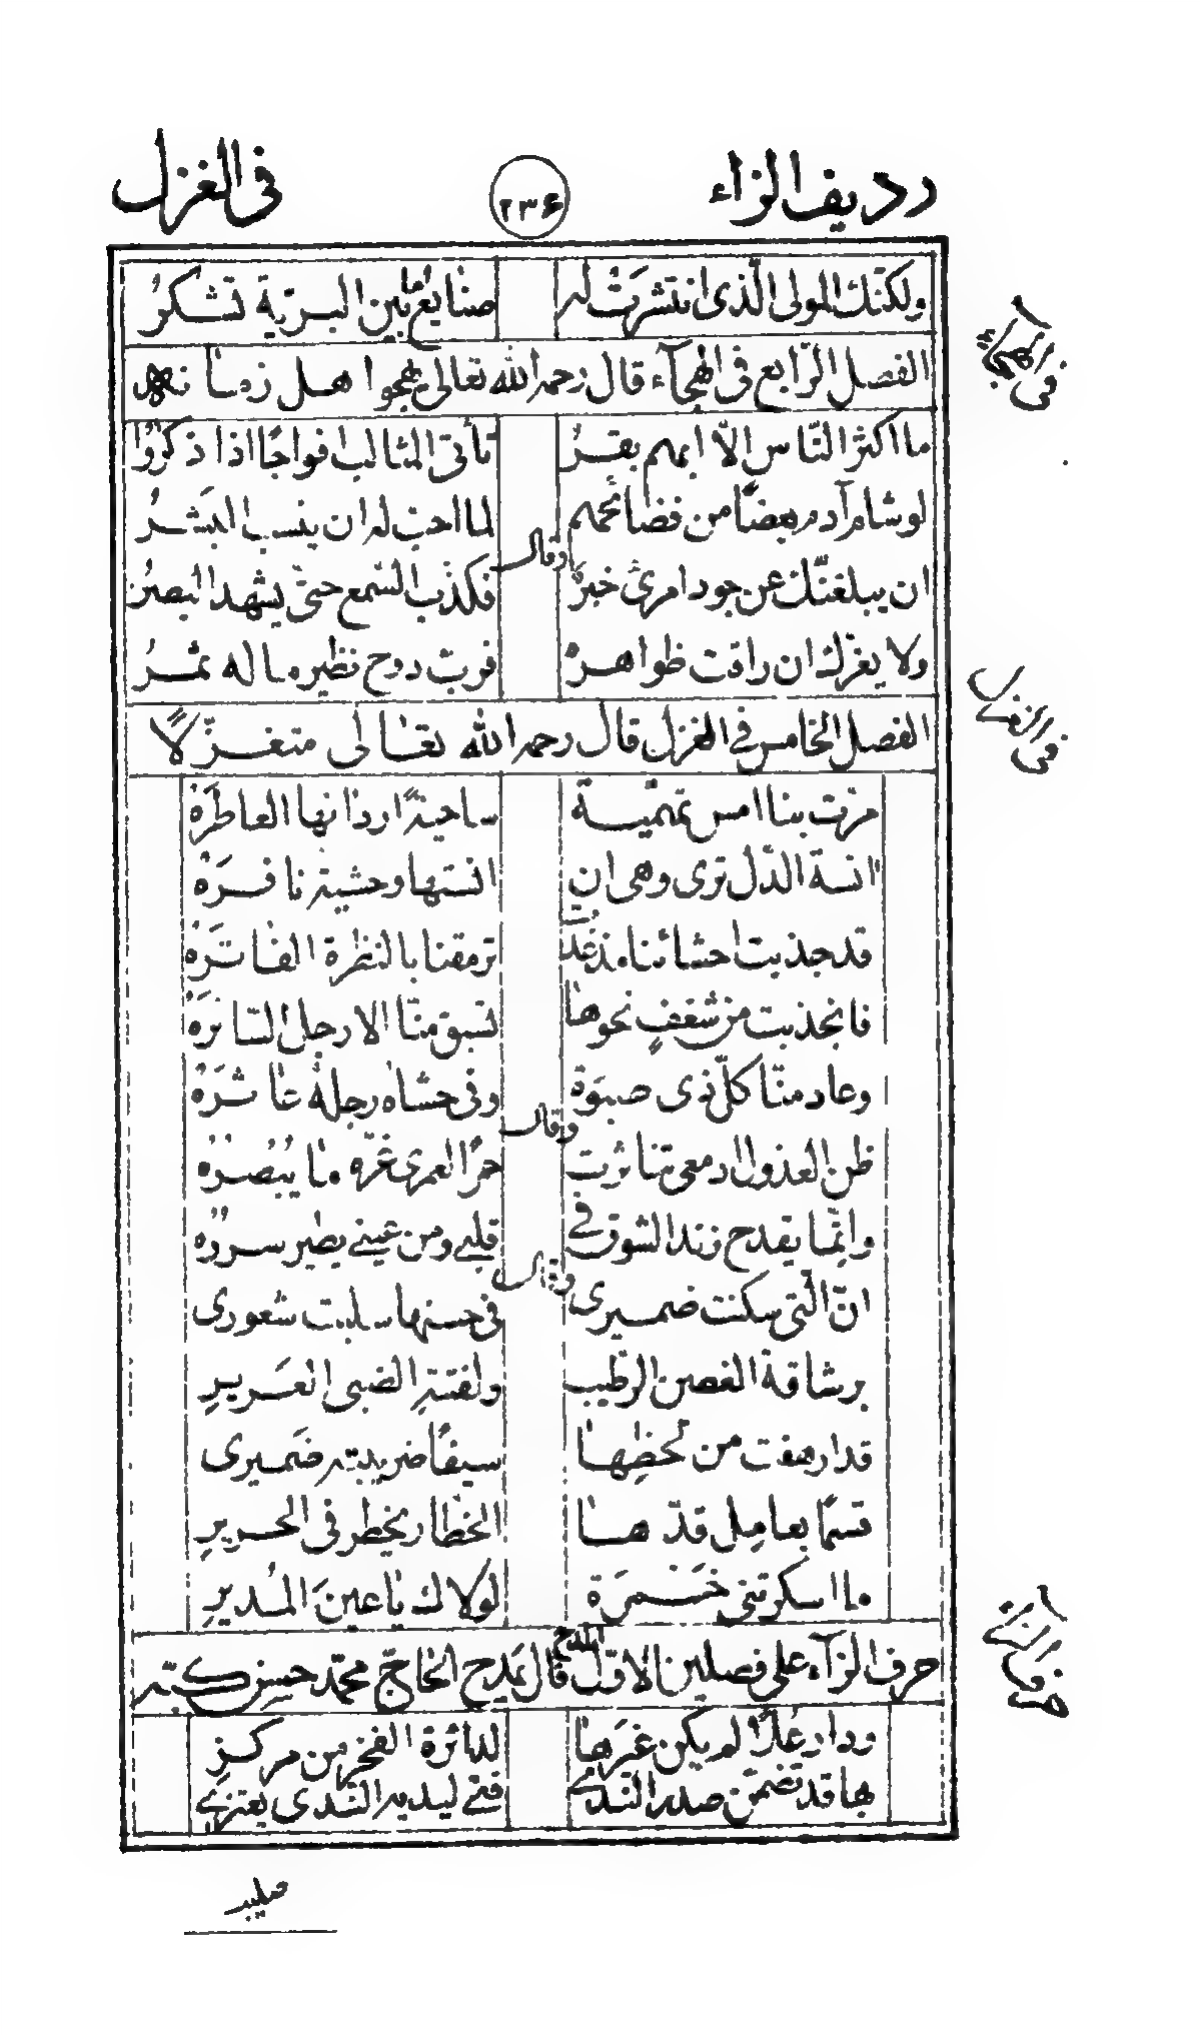 رديف الراء ٢٣۶ فى الغزل
ولكنّك المولى الّذى انتشرت له صنايع ما بين البريّة تشكرُ
فى الهجاء
الفصل الرّابع فى الهجآء قال رحمه الله تعالى يهجوا اهل زمانه
ما اكثر النّاس الّا انهم بقرُ تأتى المثالب افواجًا اذا ذكروُا
لو شام آدم بعضًا من فضائحهم لما احبّ له ان ينسب البشرُ
وقال
ان يبلغنّك عن جود امرئ خبرٌ فكذّب السّمع حتىّ يشهد البصرُ
ولا يغرّك ان راقت ظواهرهُ فربّ دوح نظير ماله ثمرُ
فى الغزل
الفصل الخامس فى الغزل قال رحمه الله تعالى متغزّلاً
مرّت بنا امس تهميّة ساحبةً اردانها العاطرَهْ
انسة الدّل ترى وهى ان انستها وحشية نافرَهْ
قد جذبت احشائنا مذ غدت ترمقنا بالنظرة الفاترَهْ
فانجذبت من شغفٍ نحوها تسبق منّا الارجل السّائرَهْ
وعاد منّا كلّ ذى صبوة وفى حشاه رجله عاثرَهْ
وقال
ظن العذول ادمعى تناثرت حمرًا لعمرى غرّه ما يبُصرُهْ
وانّما يقدح زند الشوق فى قلبى ومن عينى يطير سررُهْ
وقال
انّ الّتى سكنت ضميرى فى حسنها سلبت شعورى
برشاقة الغصن الرّطيب ولفتةِ الضبى الغريرِ
قد ارهفت من لحظِها سيفًا ضريبته ضميرى
قسمًا بعامِل قدّها الخطّار يخطر فى الحريرِ
ما اسكرتنى خمرة لولاك يا عينَ المُديرِ
حرف الزاء
حرف الزآء على فصلين الاوّل المديح قال يمدح الحاجّ محمّد حسن كبّته
ودار عُلاً لم يكن غيَرها لدائرة الفخر من مركزِ
بها قد تضمّن صدر النّدىّ فتى لديه النّدى يعتزى